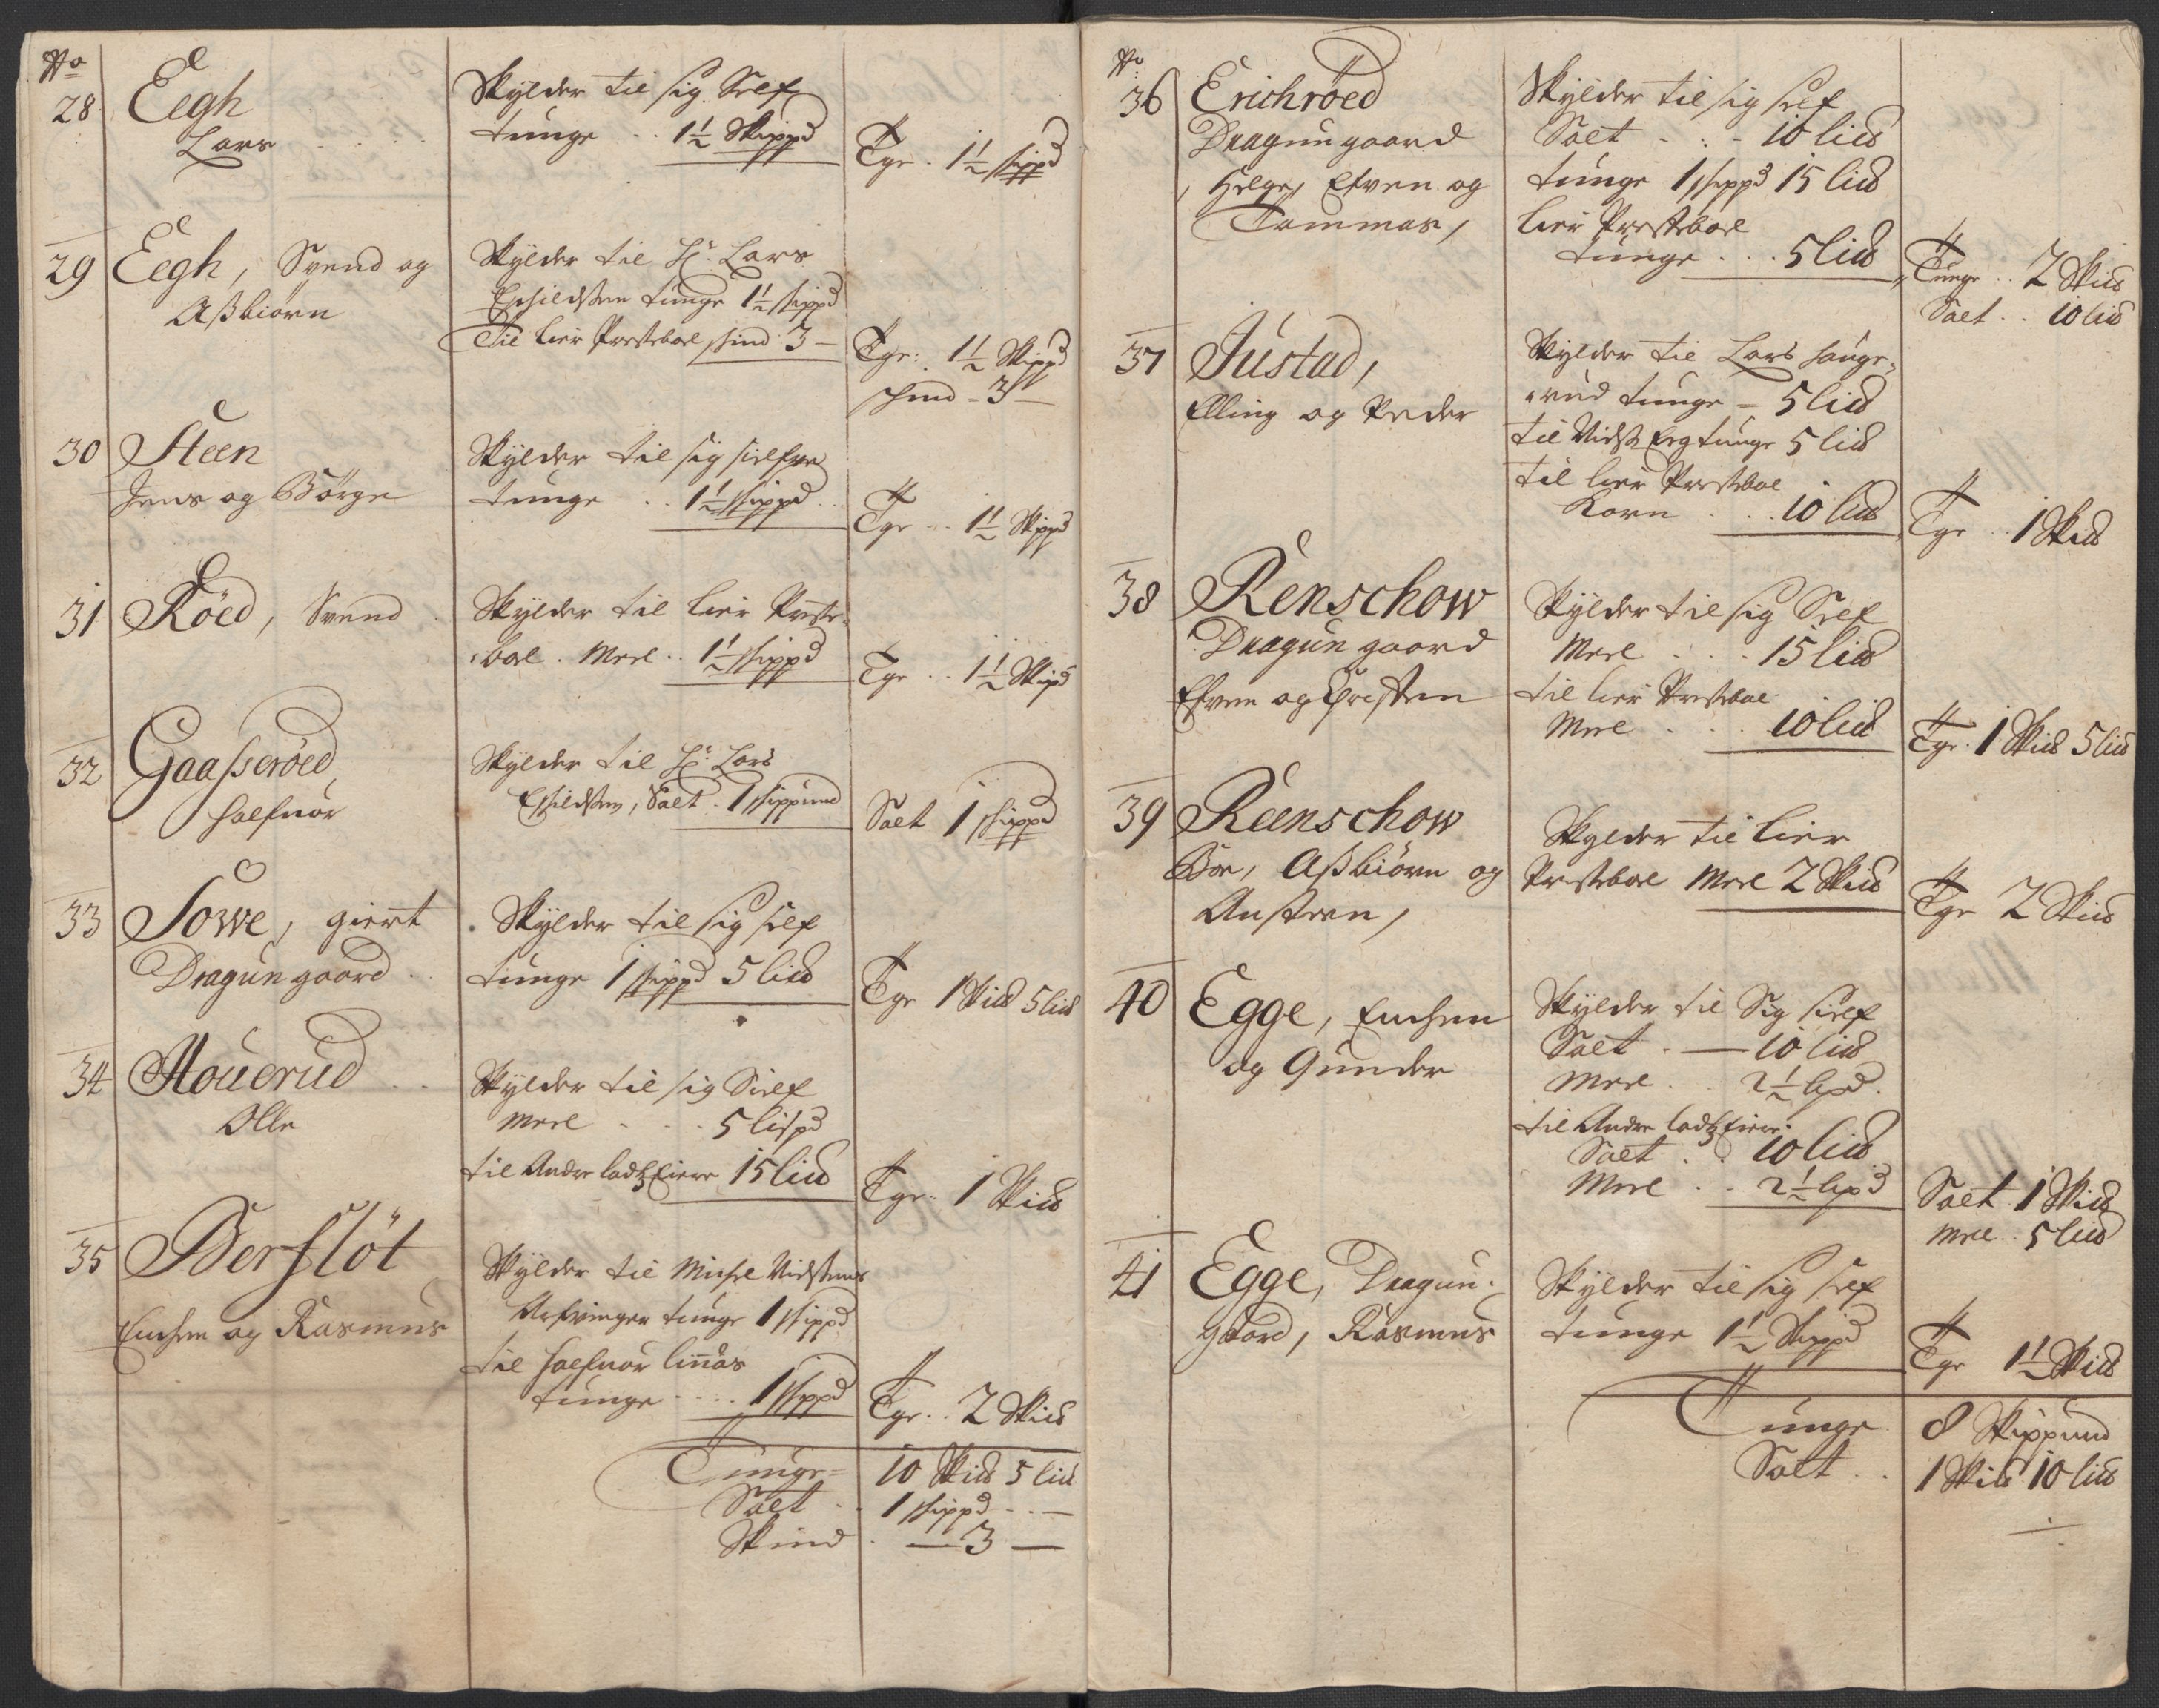 No
28
Eegh
Lars
Skylder til sig Self
tunge .. 1½ Skippd
Tge . 1½ skippd
29
Eegh, Svend og
Aßbiörn
Skylder til Hr. Lars
Eschildsen tunge 1½ skippd
Til Lier Presteboel skind 3 —
Tge: 1½ Skippd
skind - 3 —
30
Steen
Jens og Börge
Skylder til sig sielfue
tunge .. 1½ skippd
Tge .. 1½ Skippd
31
Röed, Svend
Skylder til Lier Preste-
boel . Meel .. 1½ skippd
Tge .. 1½ Skipd
32
Gaasseröed
Halfuor
Skylder til Hr. Lars
Eschildsen, Salt . 1 skippund
Salt 1 skippd
33
Sowe, giert
Dragun gaard
Skylder til sig self
tunge 1 skippd 5 Lied
Tge 1 Skid 5 Lid
34
Houerud
Olle
Skylder til sig Sielf
Meel . . . 5 Lispd
til Andre Lodtz Eiere 15 Lid
Tge . 1 Skid
35
Berflöt
Euchen og Rasmus
Skylder til Michel Vidstens
Arfvinger tunge 1 skippd
til Halfuor Linnås
tunge .... 1 skippd
Tge .. 2 Skid
Tunge 10 Skid 5 Lid
Salt .. 1 skippd . . —
Skind . — 3 —
No
36
Erichröed
Dragun gaard
Helge, Efven og
Tommas,
Skylder til sig self
Salt - . - 10 Lid
tunge 1 skippd 15 Lid
Lier Presteboel
tunge . . . 5 Lid
Tunge .. 2 Skid
Salt .. 10 Lid
37
Justad,
Elling og Peder
Skylder til Lars Hauge-
rud tunge — 5 Lid
til Vidst Eeg tunge 5 Lid
til Lier Presteboel
Korn . . . 10 Lid
Tge . . 1 Skid
38
Renschow
Dragun gaard
Efven og Christen
Skylder til sig Self
Meel . . . 15 Lid
til Lier Prestebol
Meel . . . 10 Lid
Tge . 1 Skid 5 Lid
39
Reenschow
Boe, Aßbiörn og
Austeen,
Skylder til Lier
Presteboel Meel 2 Skid
Tge 2 Skid
40
Egge, Euchen
og Gunder
Skylder til Sig sielf
Salt . — 10 Lid
Meel . . 2½ Lpd.
til Andre Lodtz Eiere
Salt . . 10 Lid
Meel . . 2½ Lpd
Salt 1 Skid
Meel . 5 Lid
41
Egge, Dragun-
Gaard, Rasmus
Skylder til sig self
tunge 1½ Skippd
Tge 1½ Skid
Tunge 8 Skippund
Salt . . 1 Skid 10 Lid